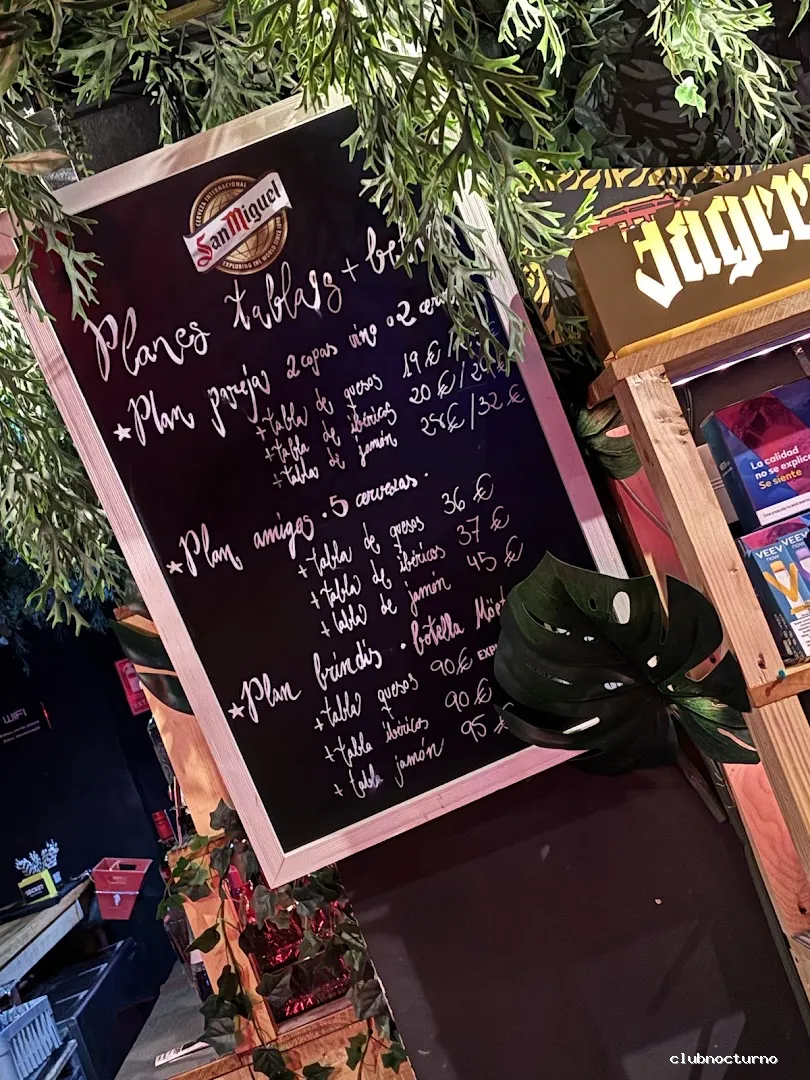 CERVEZA INTERNACIONAL
San Miguel
EXPLORING THE WORLD
Planes tablas +
*Plan pareja 2 copas vino o 2
+tabla de quesos 19 €
+tabla de ibéricos 20 € /
+tabla de jamón 28€ /32 €
*Plan amigos . 5 cervezas .
+tabla de quesos 36 €
+tabla de ibéricos 37 €
+tabla de jamón 45 €
*Plan brindis . botella Möet
+tabla quesos 90€
+tabla ibéricos 90€
+tabla jamón 95 €
Jäger
La calidad
no se explica
Se siente
VEEV VEEV
now
WIFI
clubnocturno